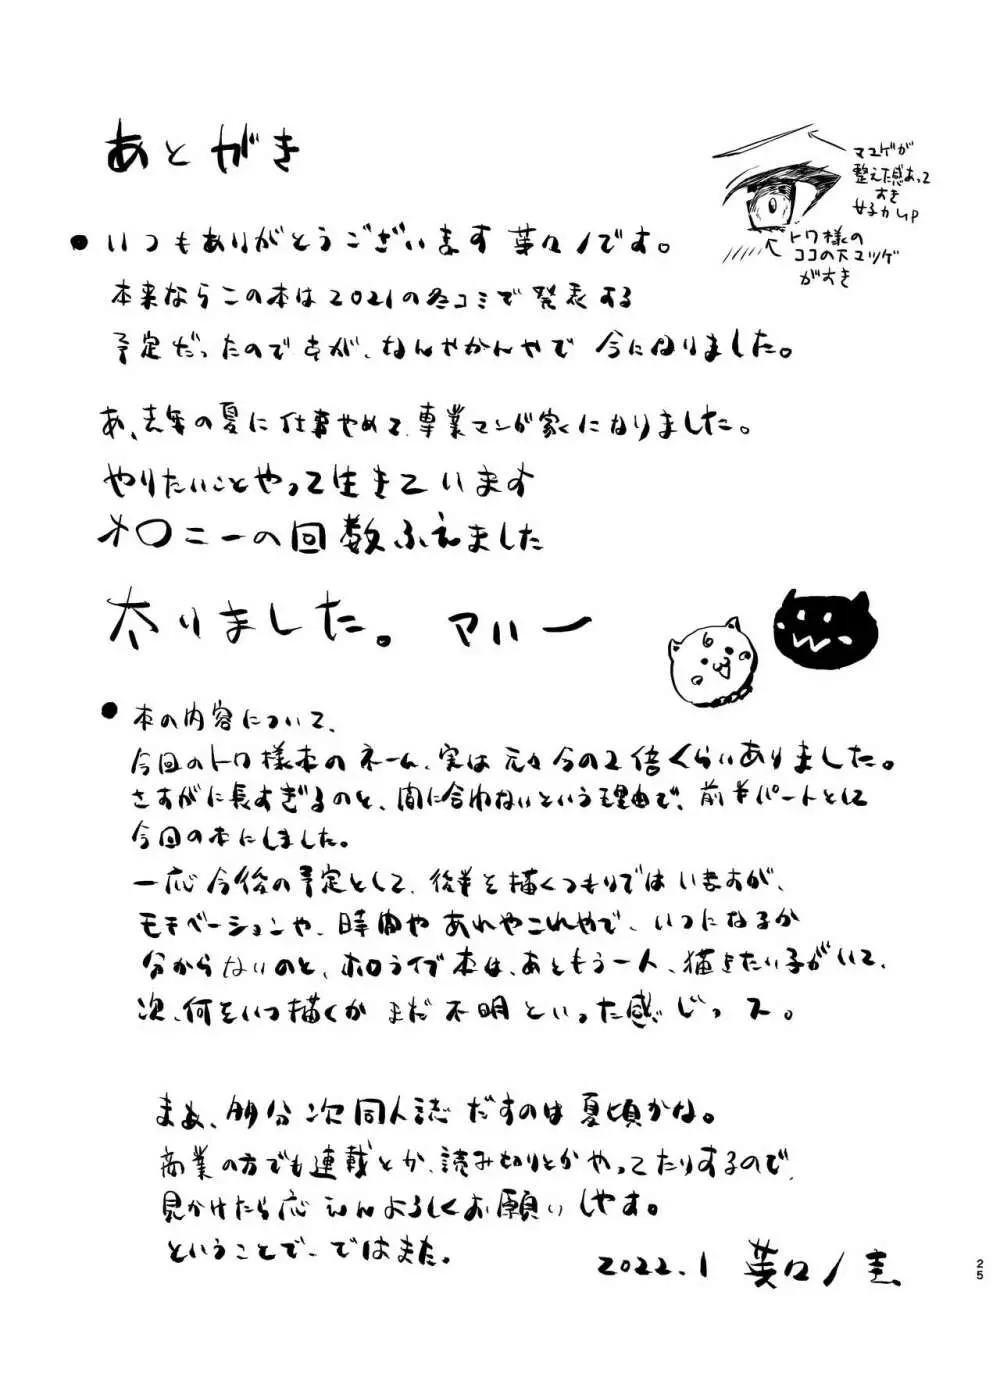 あとがき
マユゲが
整えた感あって
すき
女子力UP
トワ様の
ココの下マツゲ
がすき
● いつもありがとうございます 葉々ノです。
本来ならこの本は2021の冬コミで発表する
予定だったのですが、なんやかんやで 今になりました。
あ、去年の夏に仕事やめて、専業マンガ家になりました。
やりたいことやって生きています
オ〇ニーの回数ふえました
太りました。 マルー
● 本の内容について、
今回のトワ様本のネーム、実は元々今の2倍くらいありました。
さすがに長すぎるのと、間に合わないという理由で、前半パートとして
今回の本にしました。
一応今後の予定として、後半を描くつもりではいますが、
モチベーションや、時間や あれやこれやで、いつになるか
分からないのと、ホロライブ本は、あともう一人、描きたい子がいて、
次、何をいつ描くか まだ 不明といった感じっス。
まぁ、多分 次 同人誌 だすのは 夏頃かな。
商業の方でも連載とか、読み切りとか やってたりするので、
見かけたら応えんよろしくお願いしやす。
ということで、ではまた。
2022.1
25